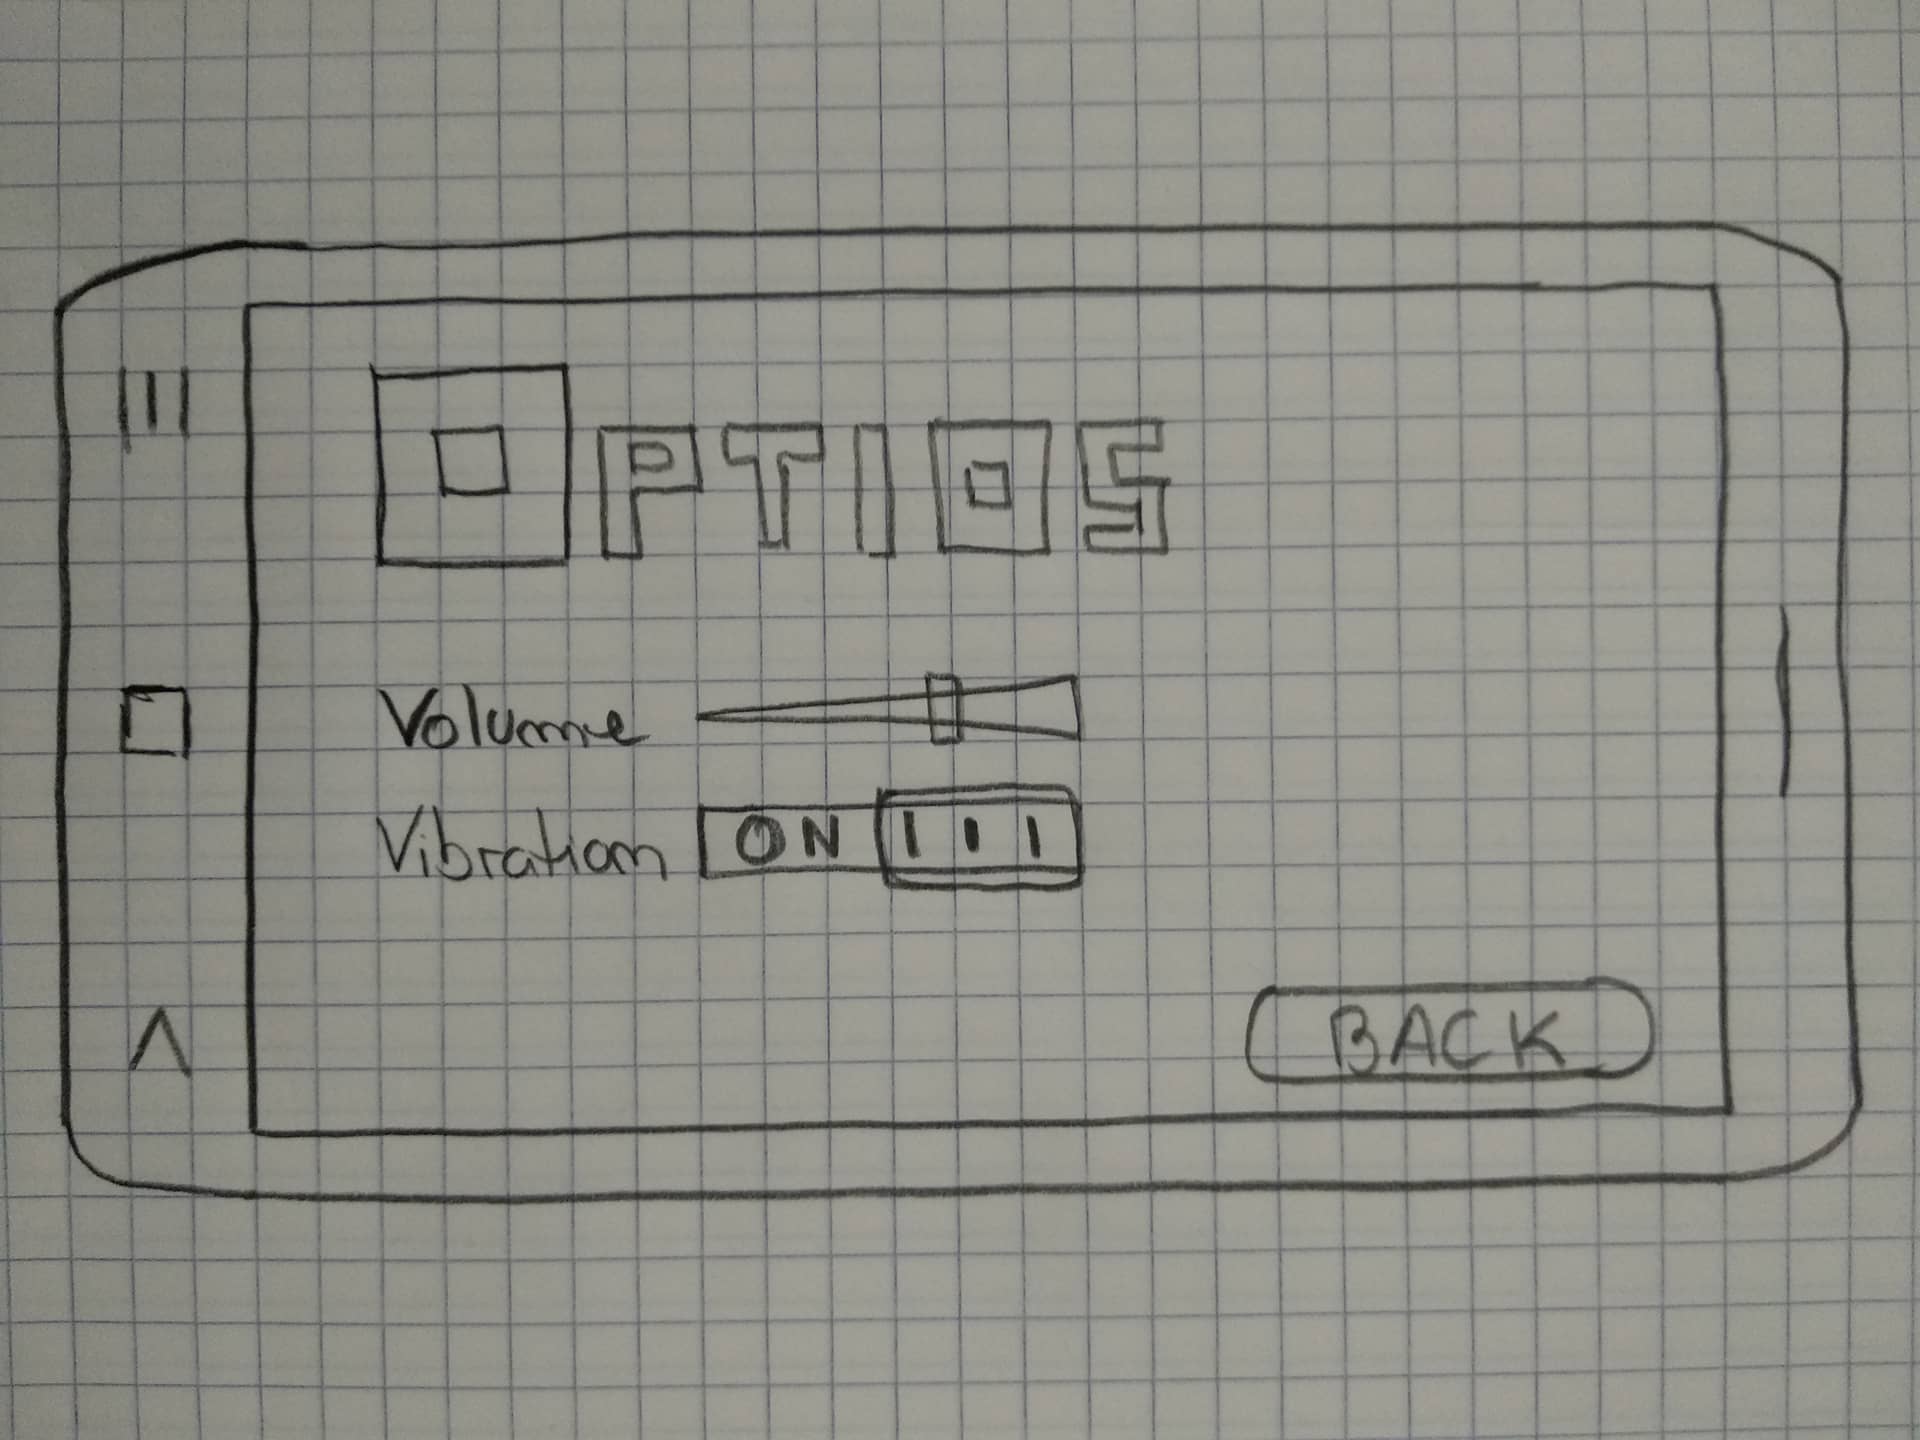 OPTIOS
Volume
Vibration ON
BACK